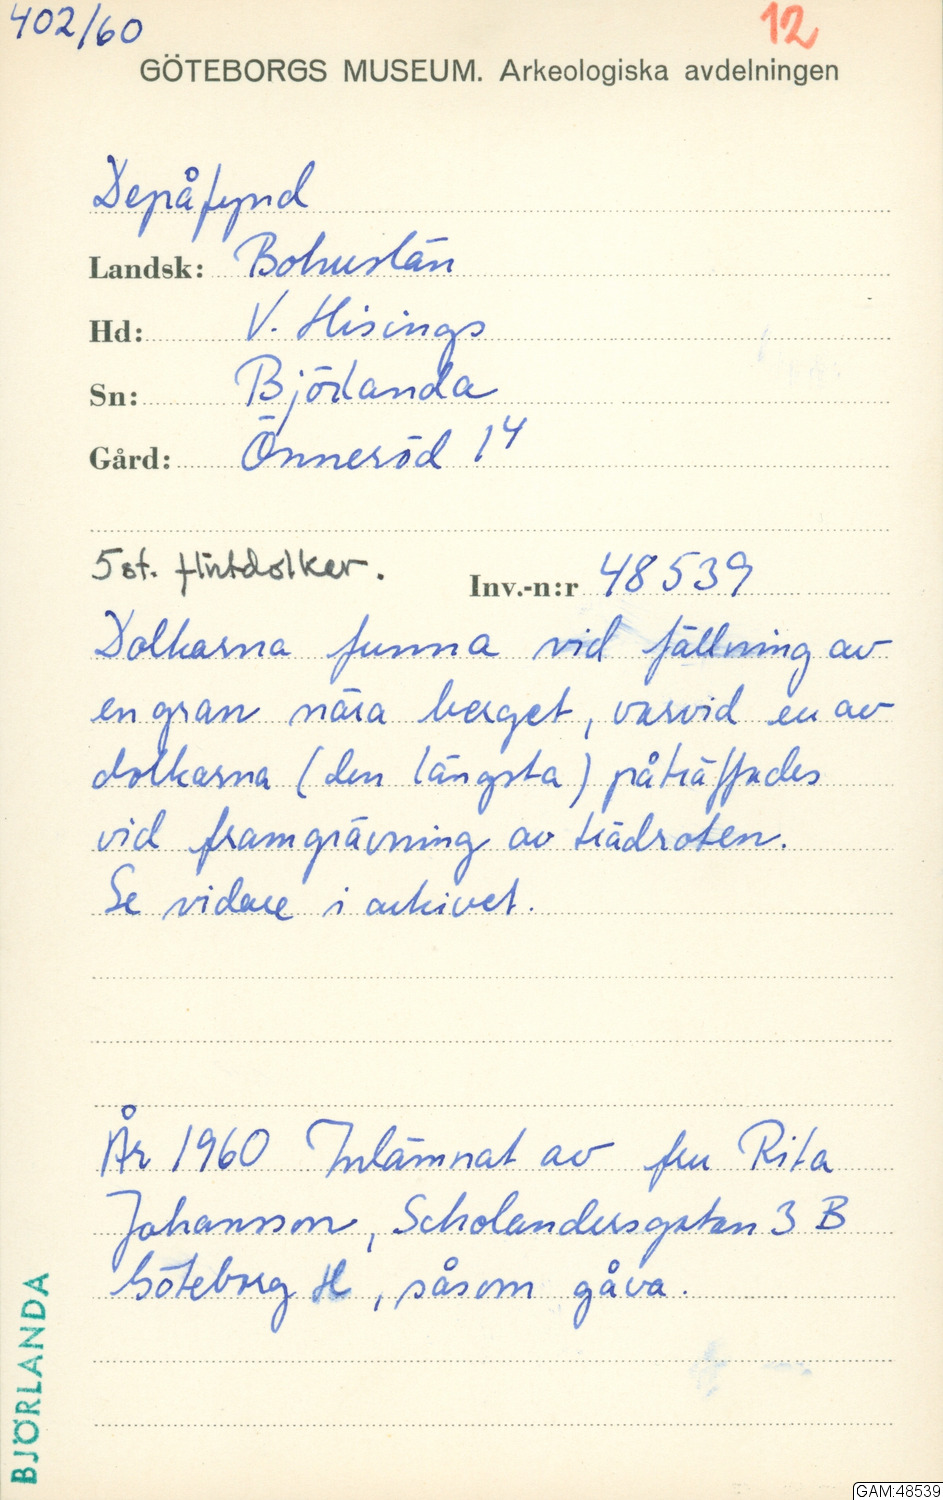 402/60
12
GÖTEBORGS MUSEUM. Arkeologiska avdelningen
Depåfynd
Landsk: Bohuslän
Hd: V. Hisings
Sn: Björlanda
Gård: Önneröd 1⁴
5 st. flintdolkar.
Inv.-n:r 48539
Dolkarna funna vid fällning av
en gran nära berget, varvid en av
dolkarna (den längsta) påträffades
vid framgrävning av trädroten.
Se vidare i arkivet.
År 1960 Inlämnat av fru Rita
Johansson, Scholandersgatan 3 B
Göteborg H, såsom gåva.
BJÖRLANDA
GAM:48539